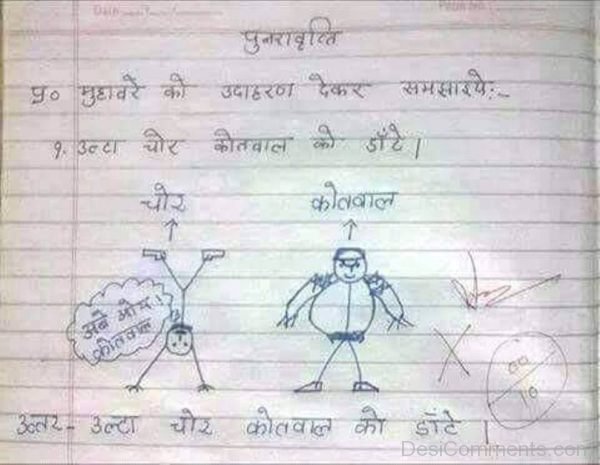 Date
Page No.
पुनरावृत्ति
प्र० मुहावरे को उदाहरण देकर समझाइये:-
१. उल्टा चोर कोतवाल को डाँटे।
चोर कोतवाल
अबे ओय!
कोतवाल
00
10
उत्तर- उल्टा चोर कोतवाल को डाँटे।
DesiComments.com